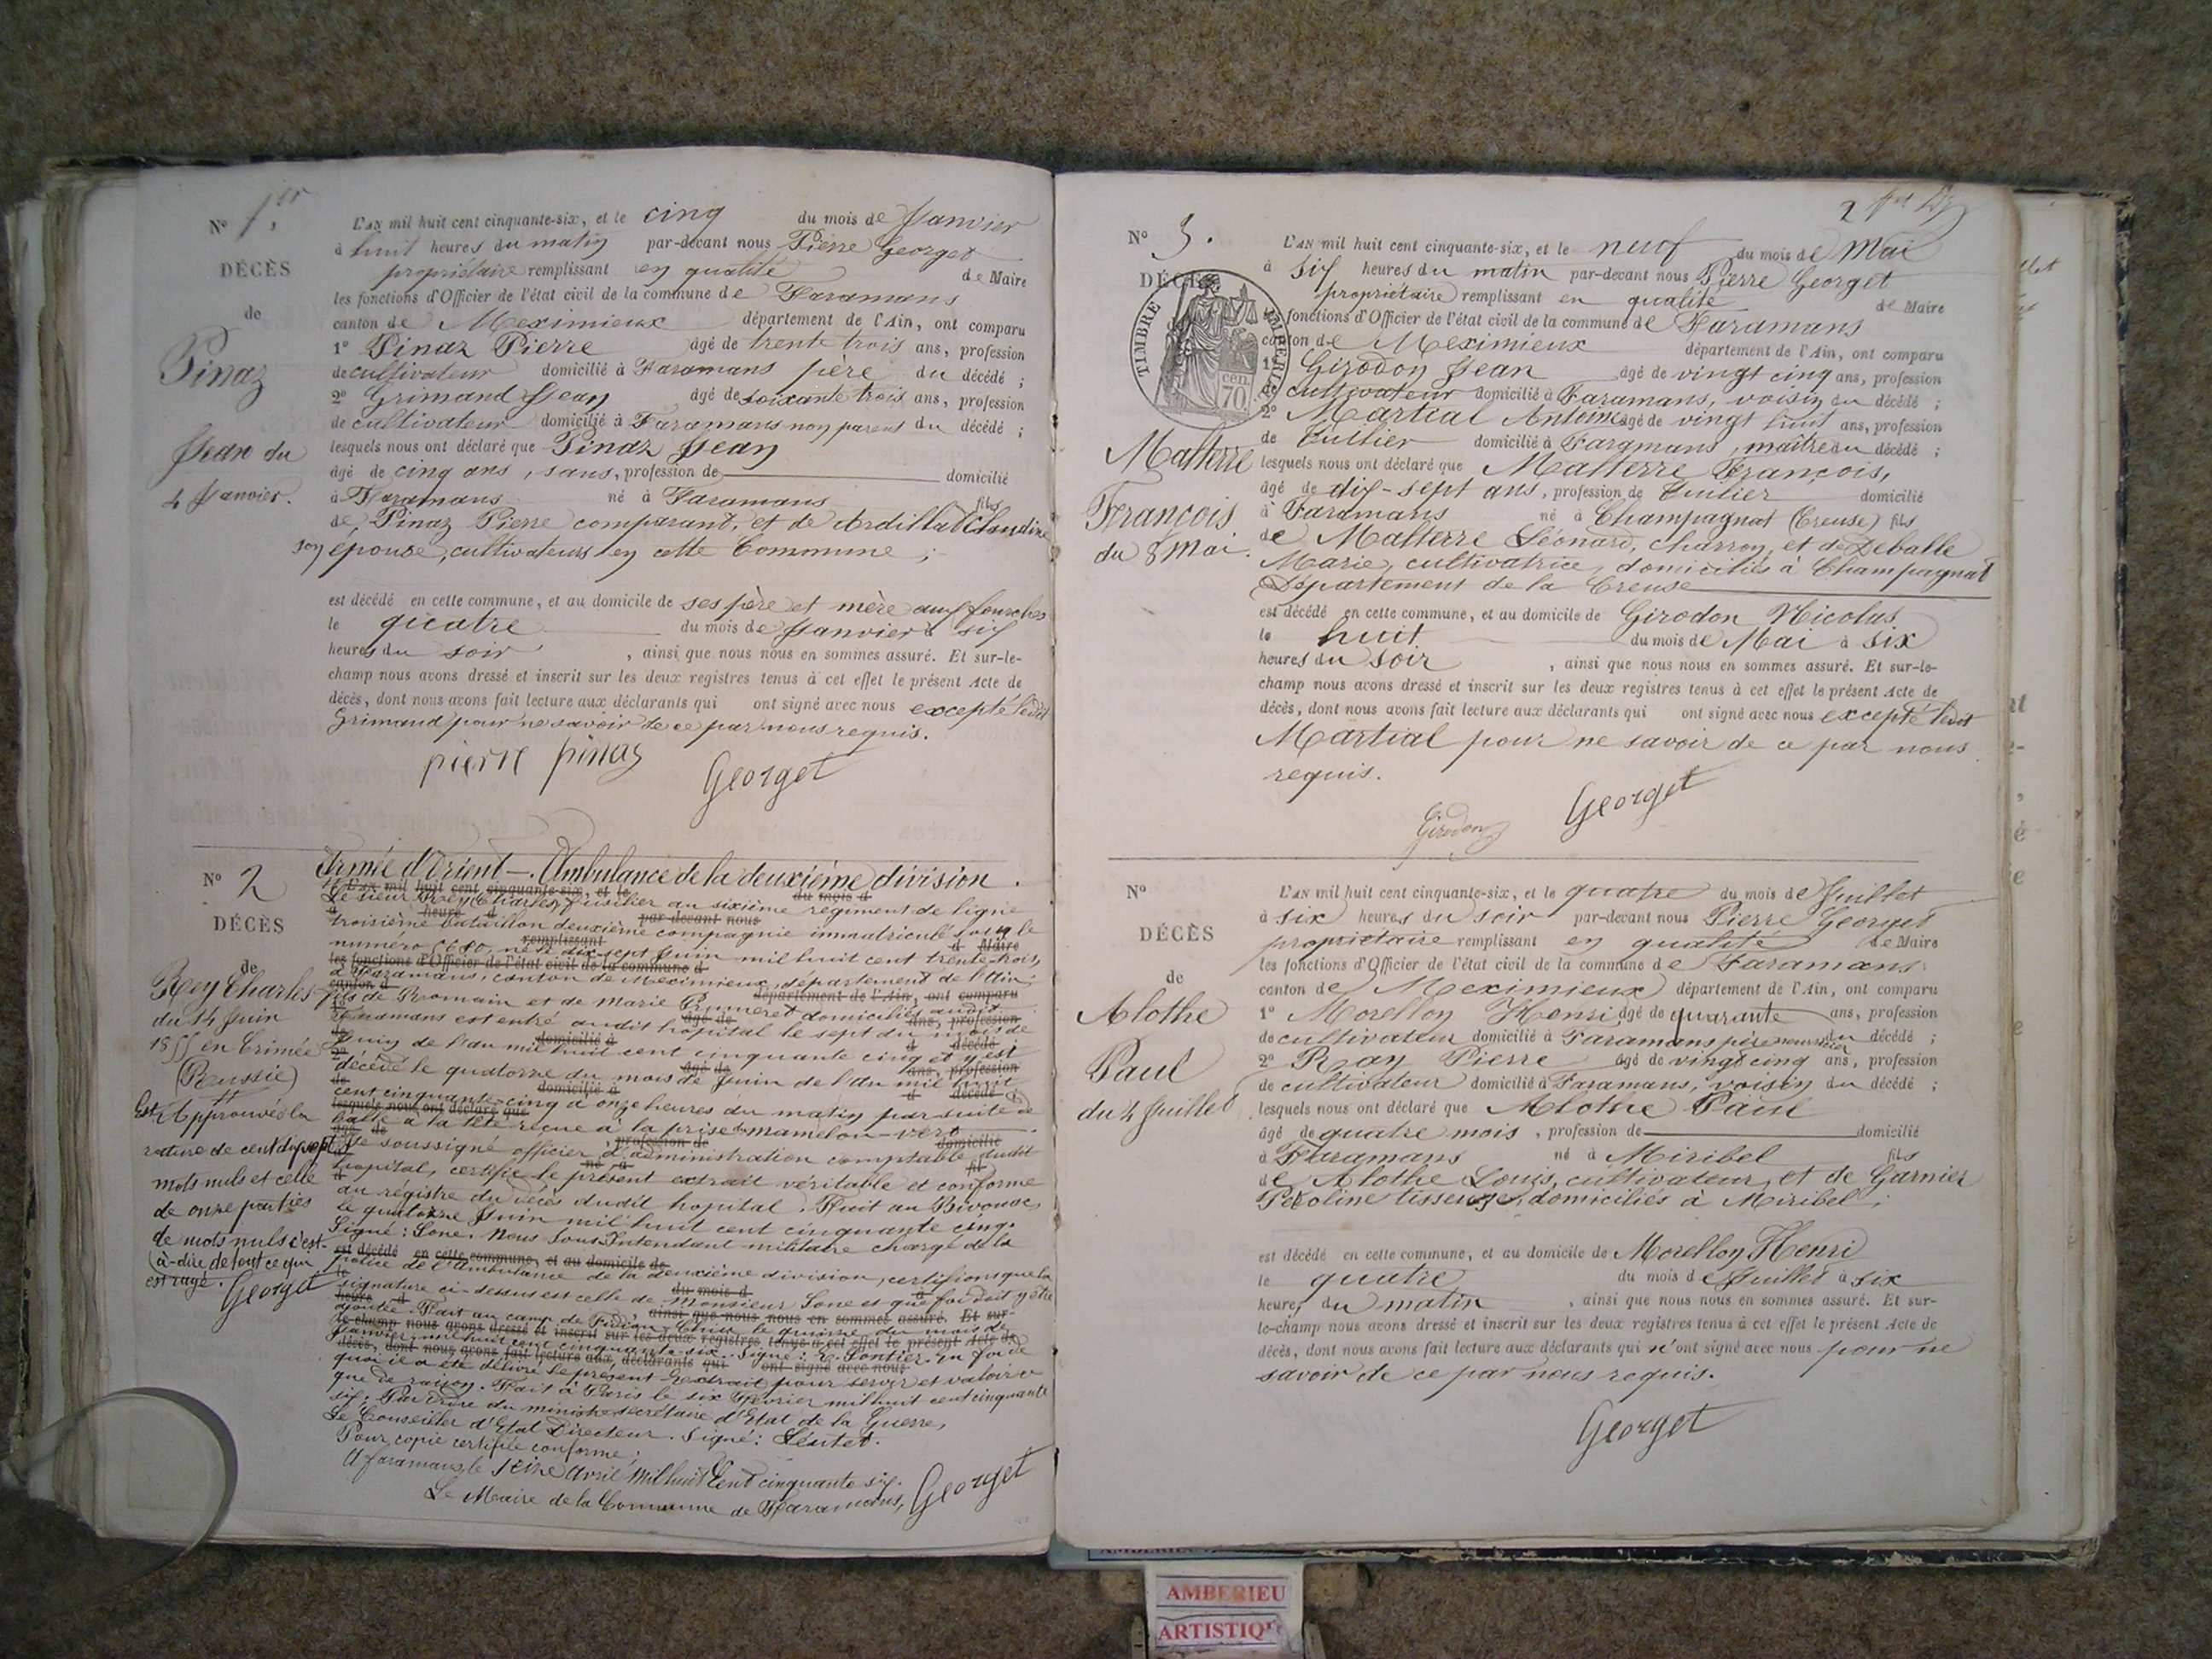 N° 1er
DÉCÈS
de
Pinaz
Jean du
4 Janvier.
L'AN mil huit cent cinquante-six, et le cinq du mois de Janvier
à huit heures du matin par-devant nous Pierre Georget
propriétaire remplissant en qualité de Maire
les fonctions d'Officier de l'état civil de la commune de Faramans
canton de Meximieux département de l'Ain, ont comparu
1° Pinaz Pierre âgé de trente trois ans, profession
de cultivateur domicilié à Faramans père du décédé ;
2° Grimand Jean âgé de soixante trois ans, profession
de cultivateur domicilié à Faramans non parent du décédé ;
lesquels nous ont déclaré que Pinaz Jean
âgé de cinq ans, sans, profession de domicilié
à Faramans né à Faramans fils
de Pinaz Pierre comparant, et de Ardillat Claudine
son épouse, cultivateurs en cette Commune ;
est décédé en cette commune, et au domicile de ses père et mère aux fourches
le quatre du mois de Janvier à six
heures du soir, ainsi que nous nous en sommes assuré. Et sur-le-
champ nous avons dressé et inscrit sur les deux registres tenus à cet effet le présent Acte de
décès, dont nous avons fait lecture aux déclarants qui ont signé avec nous excepté ledit
Grimand pour ne savoir de ce par nous requis.
pierre pinaz Georget
N° 2
DÉCÈS
de
Rey Charles
du 14 Juin
1855 en Crimée
(Russie)
Est Approuvée la
rature de cent dix sept
mots nuls et celle
de onze parties
de mots nuls c'est-
à-dire de tout ce qui
est rayé. Georget
Armée d'Orient — Ambulance de la deuxième division.
Le sieur Rey (Charles) fusilier au sixième régiment de ligne
troisième bataillon deuxième compagnie immatriculé sous le
numéro né le dix-sept Juin mil huit cent trente-trois,
à Faramans, canton de Meximieux, département de l'Ain,
fils de Romain et de Marie domiciliés audit
Faramans est entré audit hôpital le sept du mois de
Juin de l'an mil huit cent cinquante cinq et y est
décédé le quatorze du mois de Juin de l'an mil huit
cent cinquante-cinq à onze heures du matin par suite de
balle à la tête reçue à la prise du mamelon-vert
Je soussigné officier d'administration comptable dudit
hôpital, certifie le présent extrait véritable et conforme
au régistre du décès dudit hôpital. Fait au Bivouac,
le quatorze Juin mil huit cent cinquante cinq.
Signé : Sone. Nous Sous-Intendant militaire chargé de la
police de l'Ambulance de la deuxième division, certifions que la
signature ci-dessus est celle de Monsieur Sone et que foi doit y être
ajoutée. Fait au camp de le quinze du mois de
Janvier mil huit cent cinquante-six. Signé : En foi de
quoi il a été délivré le présent Extrait pour servir et valoir ce
que de raison. Fait à Paris le six Février mil huit cent cinquante
six. Par ordre du ministre secrétaire d'Etat de la Guerre,
Le Conseiller d'Etat Directeur. Signé :
Pour copie certifiée conforme :
A faramans, le seize avril mil huit Cent cinquante six.
Le Maire de la Commune de Faramans, Georget
2
N° 3.
DÉCÈS
TIMBRE IMPÉRIAL
70 cen.
Malterre
François
du 8 Mai.
L'AN mil huit cent cinquante-six, et le neuf du mois de Mai
à six heures du matin par-devant nous Pierre Georget
propriétaire remplissant en qualité de Maire
fonctions d'Officier de l'état civil de la commune de Faramans
canton de Meximieux département de l'Ain, ont comparu
1° Girodon Jean âgé de vingt cinq ans, profession
de cultivateur domicilié à Faramans, voisin du décédé ;
2° Martial Antoine âgé de vingt huit ans, profession
de Tuilier domicilié à Faramans, maître du décédé ;
lesquels nous ont déclaré que Malterre François,
âgé de dix-sept ans, profession de Tuilier domicilié
à Faramans né à Champagnat (Creuse) fils
de Malterre Léonard, charron, et de Deballe
Marie, cultivatrice, domiciliés à Champagnat
Département de la Creuse
est décédé en cette commune, et au domicile de Girodon Nicolas
le huit du mois de Mai à six
heures du soir, ainsi que nous nous en sommes assuré. Et sur-le-
champ nous avons dressé et inscrit sur les deux registres tenus à cet effet le présent Acte de
décès, dont nous avons fait lecture aux déclarants qui ont signé avec nous excepté ledit
Martial pour ne savoir de ce par nous
requis.
Girodon Georget
N°
DÉCÈS
de
Alothe
Paul
du 4 Juillet
L'AN mil huit cent cinquante-six, et le quatre du mois de Juillet
à six heures du soir par-devant nous Pierre Georget
propriétaire remplissant en qualité de Maire
les fonctions d'Officier de l'état civil de la commune de Faramans
canton de Meximieux département de l'Ain, ont comparu
1° Morellon Henri âgé de quarante ans, profession
de cultivateur domicilié à Faramans père nourricier du décédé ;
2° Ray Pierre âgé de vingt cinq ans, profession
de cultivateur domicilié à Faramans, voisin du décédé ;
lesquels nous ont déclaré que Alothe Paul
âgé de quatre mois, profession de domicilié
à Faramans né à Miribel fils
de Alothe Louis, cultivateur, et de Garnier
tisseuse, domiciliés à Miribel ;
est décédé en cette commune, et au domicile de Morellon Henri
le quatre du mois de Juillet à six
heures du matin, ainsi que nous nous en sommes assuré. Et sur-
le-champ nous avons dressé et inscrit sur les deux registres tenus à cet effet le présent Acte de
décès, dont nous avons fait lecture aux déclarants qui n'ont signé avec nous pour ne
savoir de ce par nous requis.
Georget
AMBERIEU
ARTISTIQU